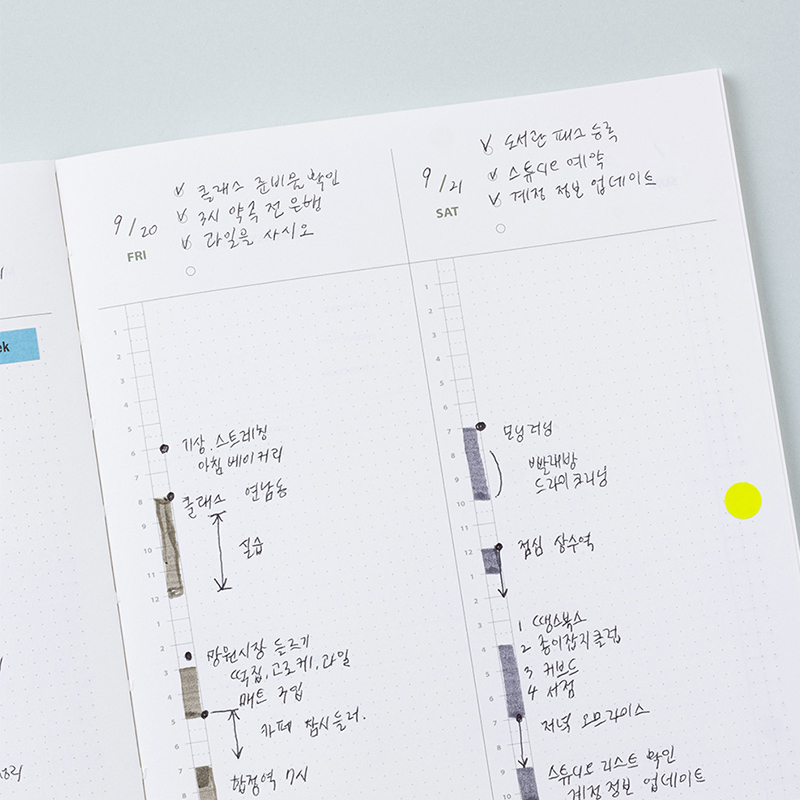 9/20
FRI
클래스 준비물 확인
3시 약속 전 은행
과일을 사시오
1
2
3
4
5
6
7
8
9
10
11
12
1
2
3
4
5
6
7
8
기상. 스트레칭
아침 베이커리
클래스 연남동
실습
망원시장 들르기
떡집, 고로케, 과일
매트 구입
카페 잠시 들러.
합정역 7시
9/21
SAT
도서관 패스 등록
스튜디오 예약
계정 정보 업데이트
1
2
3
4
5
6
7
8
9
10
11
12
1
2
3
4
5
6
7
8
9
10
모닝 러닝
빨래방
드라이 크리닝
점심 상수역
1 땡스북스
2 종이잡지클럽
3 커브드
4 서점
저녁 오므라이스
스튜디오 리스트 확인
계정 정보 업데이트
ek